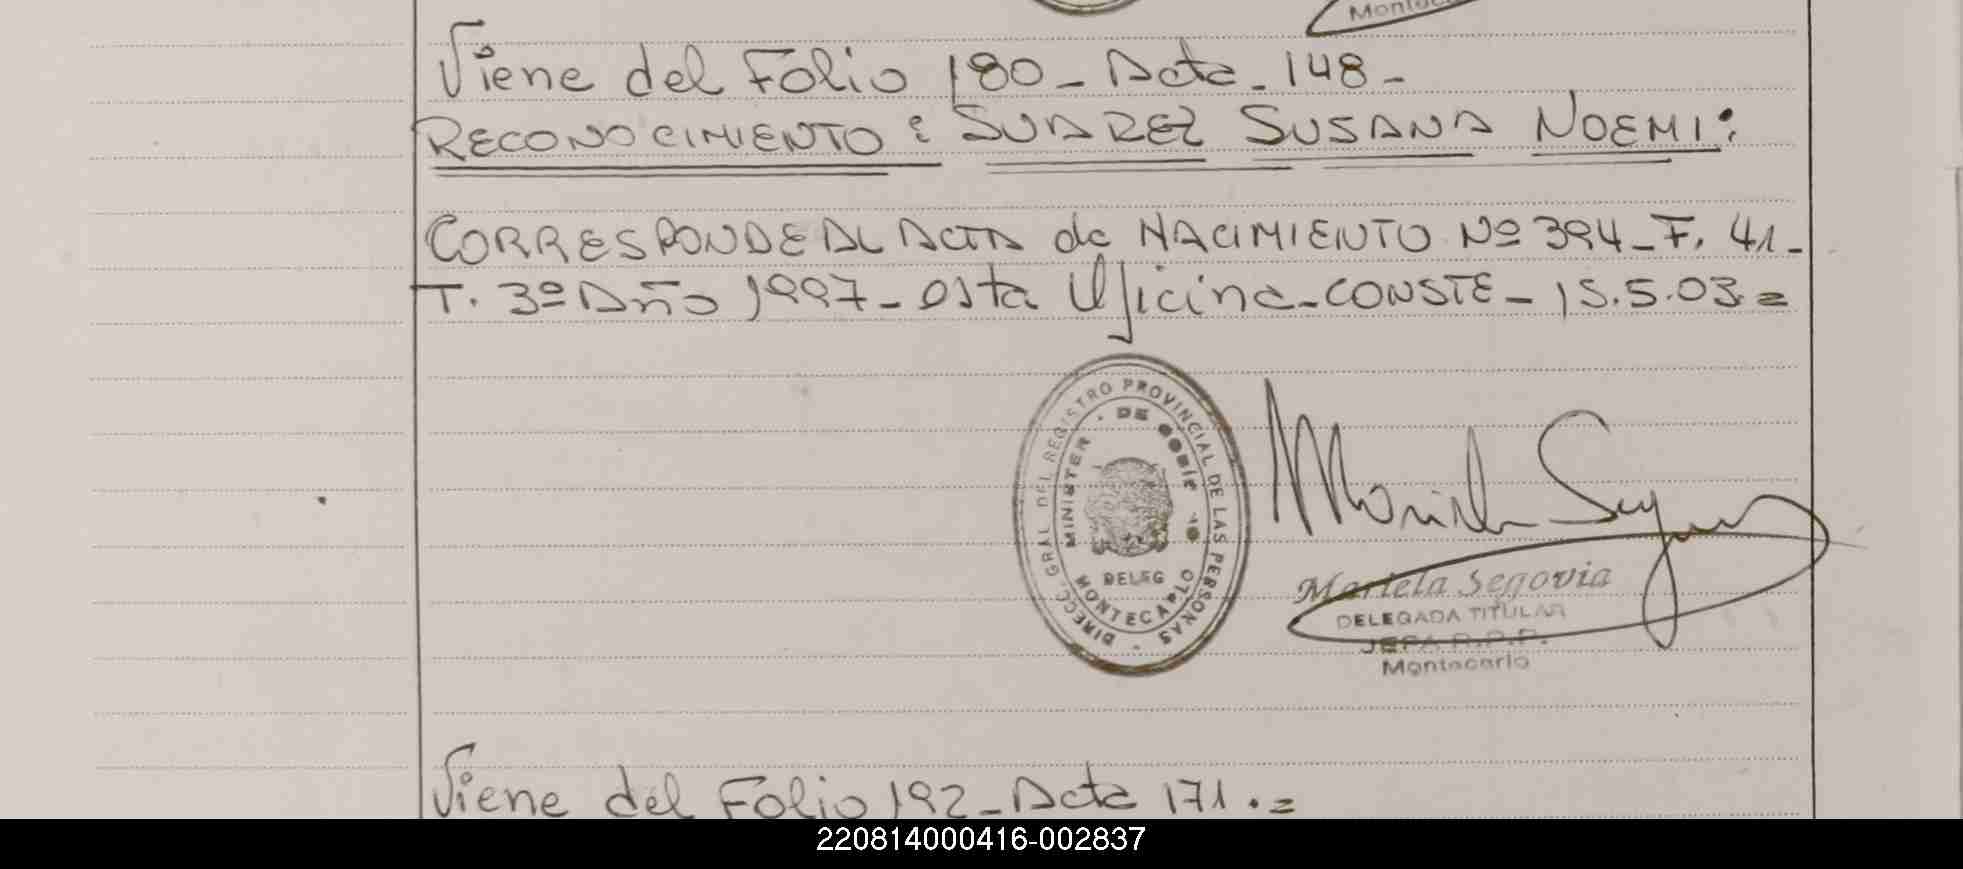 Montec
Viene del Folio 180 - Acta - 148 -
RECONOCIMIENTO : SUAREZ SUSANA NOEMI:
CORRESPONDE AL ACTA de NACIMIENTO Nº 394 - F. 41 -
T. 3º Año 1997 - esta Oficina - CONSTE - 15.5.03 =
DIRECC. GRAL. DEL REGISTRO PROVINCIAL DE LAS PERSONAS
MINISTER · DE GOBIE
DELEG
MONTECARLO
Mariela Segovia
Mariela Segovia
DELEGADA TITULAR
JEFA R.P.P.
Montecarlo
Viene del Folio 192 - Acta 171 . =
220814000416-002837